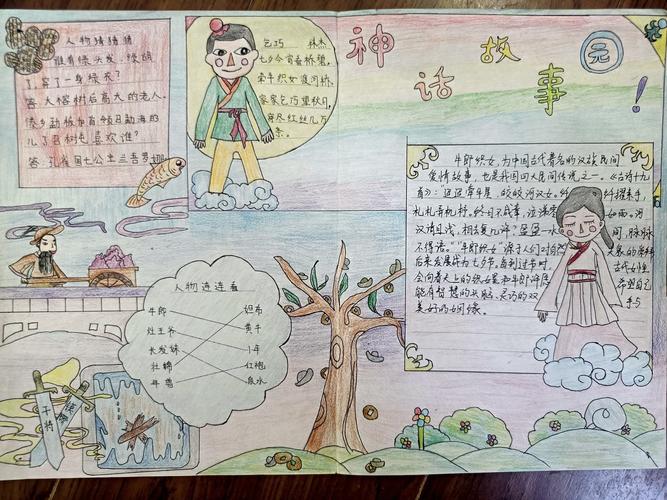 神话故事园!
人物猜猜猜
谁有绿头发,绿胡
了,穿了一身绿衣?
答:大榕树后高大的老人。
傣乡勐板加有领召勐海的
儿了召树屯喜欢谁?
答:孔雀国七公主兰吾罗娜
乞巧 林杰
七夕今宵看碧霄,
牵牛织女渡河桥。
家家乞巧望秋月,
穿尽红丝几万
条。
牛郎织女,为中国古代著名的汉族民间
爱情故事,也是我国四大民间传说之一。《古诗十九
首》:迢迢牵牛星,皎皎河汉女。纤 纤擢素手,
札札弄机杼。终日不成章,泣涕零 如雨。河
汉清且浅,相去复几许?盈盈一水 间,脉脉
不得语。"牛郎织女"源于人们对自然 天象的崇拜
后来发展成为七夕节,每到过节时, 古代女性
会向着天上的织女星和牛郎星 希望自己
能有智慧的 灵巧的双 手与
美好的姻缘。
人物连连看
牛郎 织布
灶王爷 黄牛
长发妹 1年
壮锦 红袍
年兽 泉水
干将
莫邪